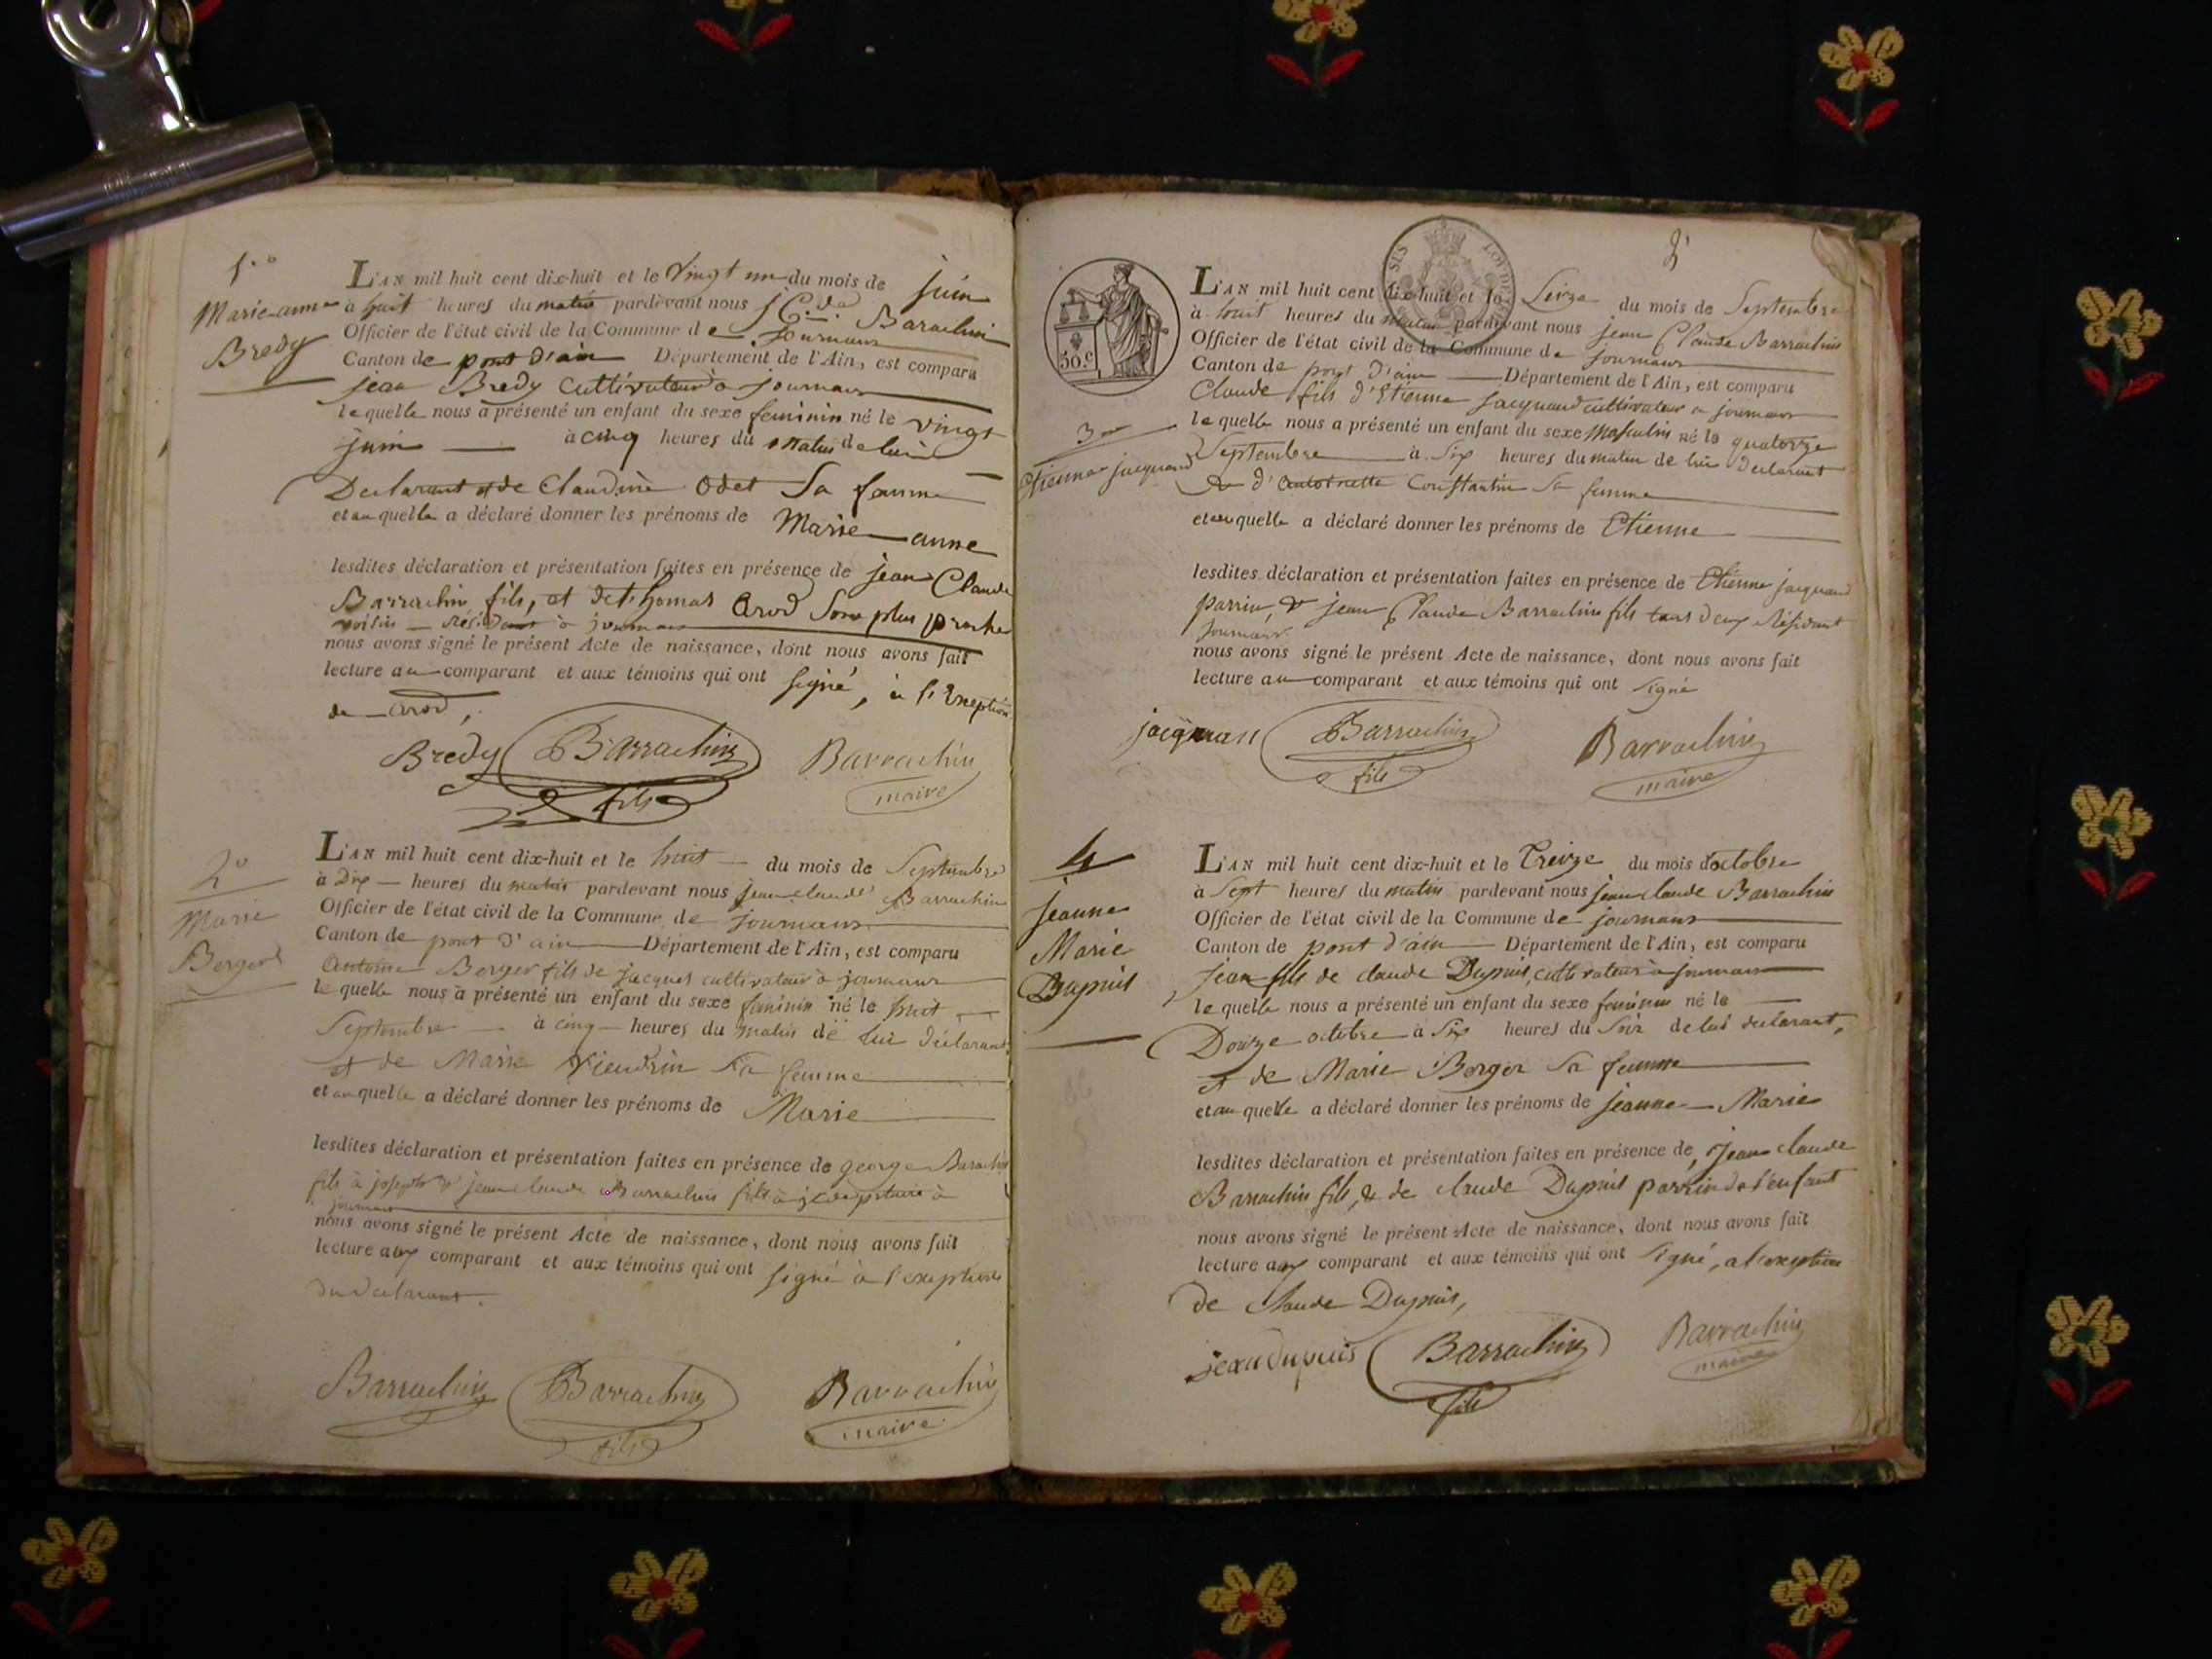 1.o
Marie-anne
Bredy
L'AN mil huit cent dix-huit et le vingt un du mois de juin
à huit heures du matin pardevant nous J C.de Barachin
Officier de l'état civil de la Commune de journans
Canton de pont d'ain Département de l'Ain, est comparu
jean Bredy cultivateur à journans
lequelle nous a présenté un enfant du sexe feminin né le vingt
juin à cinq heures du matin de lui
Declarant et de Claudine Odet Sa femme
et au quelle a déclaré donner les prénoms de Marie-anne
lesdites déclaration et présentation faites en présence de jean Claude
Barrachin fils, et de thomas Arod Son plus proche
voisin résidant à journans
nous avons signé le présent Acte de naissance, dont nous avons fait
lecture au comparant et aux témoins qui ont signé, à l'Exception
de arod,
Bredy Barrachin fils Barrachin maire
2o
Marie
Berger
L'AN mil huit cent dix-huit et le huit du mois de Septembre
à Dix heures du matin pardevant nous jean claude Barrachin
Officier de l'état civil de la Commune de journans
Canton de pont d'ain Département de l'Ain, est comparu
Antoine Berger fils de jacques cultivateur à journans
lequelle nous a présenté un enfant du sexe feminin né le huit
Septembre à cinq heures du matin de lui déclarant
et de Marie Vieudrin Sa femme
et au quelle a déclaré donner les prénoms de Marie
lesdites déclaration et présentation faites en présence de george Barachin
fils à joseph & jean claude Barrachin fils à
journans
nous avons signé le présent Acte de naissance, dont nous avons fait
lecture aux comparant et aux témoins qui ont signé à l'exception
du déclarant.
Barrachin Barrachin fils Barrachin maire
50.c
3me
Etienne jacquand
L'AN mil huit cent dix-huit et le Seize du mois de Septembre
à huit heures du matin pardevant nous jean Claude Barrachin
Officier de l'état civil de la Commune de journans
Canton de pont d'ain Département de l'Ain, est comparu
Claude fils d'Etienne jacquand cultivateur à journans
lequelle nous a présenté un enfant du sexe Masculin né le quatorze
Septembre à Six heures du matin de lui declarant
& d'antoinette Constantin Sa femme
et au quelle a déclaré donner les prénoms de Etienne
lesdites déclaration et présentation faites en présence de Etienne jacquand
parrin, & jean Claude Barrachin fils tous deux Résidant
journans
nous avons signé le présent Acte de naissance, dont nous avons fait
lecture au comparant et aux témoins qui ont signé
jacquan Barrachin fils Barrachin maire
4
jeanne
Marie
Dupuis
L'AN mil huit cent dix-huit et le Treize du mois d'octobre
à Sept heures du matin pardevant nous jean claude Barrachin
Officier de l'état civil de la Commune de journans
Canton de pont d'ain Département de l'Ain, est comparu
jean fils de claude Dupuis, cultivateur à journans
lequelle nous a présenté un enfant du sexe feminin né le
Douze octobre à Six heures du Soir de lui declarant,
et de Marie Berger Sa femme
et au quelle a déclaré donner les prénoms de jeanne-Marie
lesdites déclaration et présentation faites en présence de, jean claude
Barrachin fils, & de claude Dupuis parrin de l'enfant
nous avons signé le présent Acte de naissance, dont nous avons fait
lecture aux comparant et aux témoins qui ont signé, a l'exception
de claude Dupuis,
jean dupuis Barrachin fils Barrachin maire